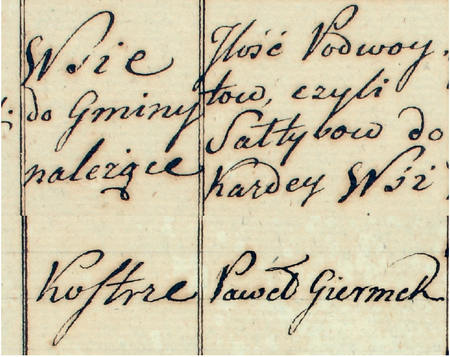 Wsie
do Gminy
należące
Ilość Podwoy
tow, czyli
Sałtysow do
Kazdey Wsi
Kostrze
Paweł Giermek